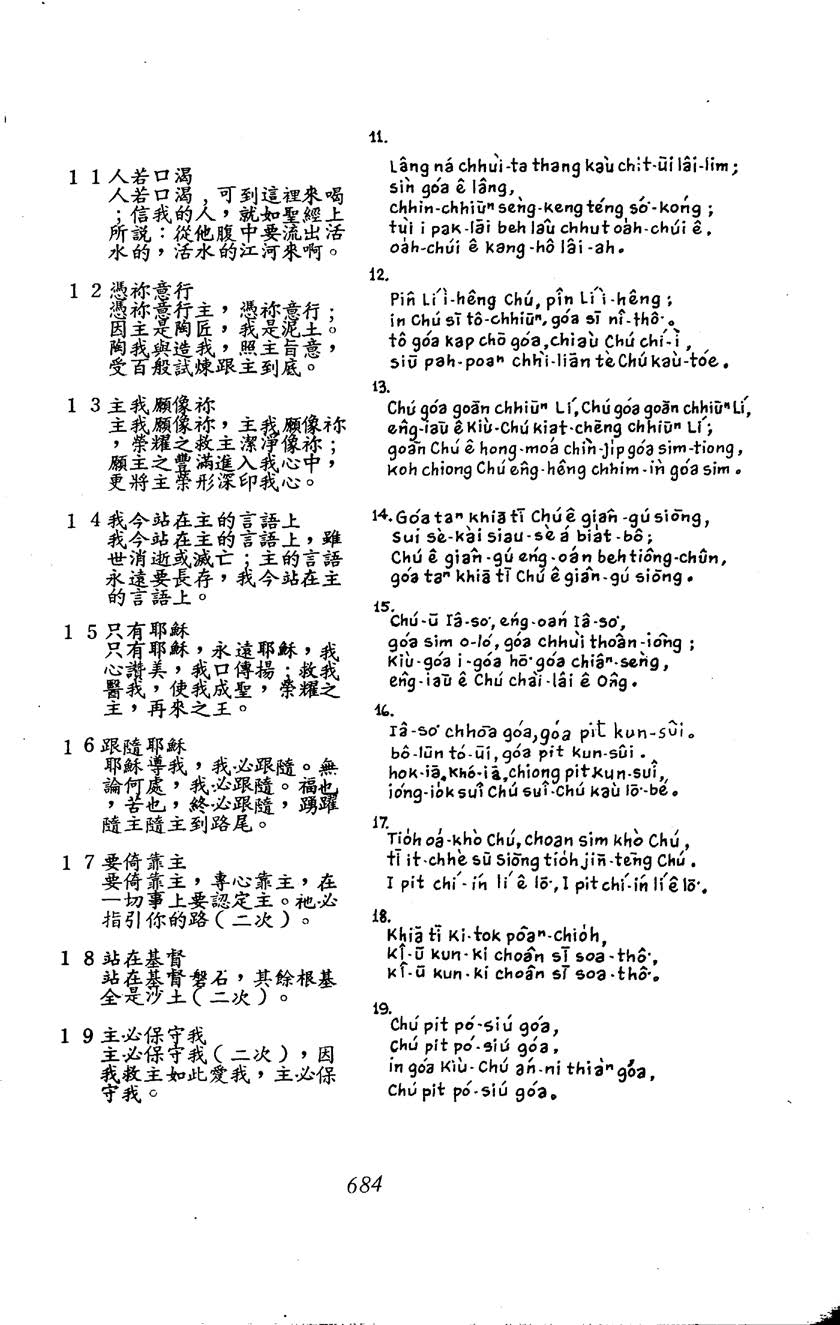 11人若口渴
人若口渴,可到這裡來喝
;信我的人,就如聖經上
所說:從他腹中要流出活
水的,活水的江河來啊。
12憑祢意行
憑祢意行主,憑祢意行;
因主是陶匠,我是泥土。
陶我與造我,照主旨意,
受百般試煉跟主到底。
13主我願像祢
主我願像祢,主我願像祢
,榮耀之救主潔淨像祢;
願主之豐滿進入我心中,
更將主榮形深印我心。
14我今站在主的言語上
我今站在主的言語上,雖
世消逝或滅亡;主的言語
永遠要長存,我今站在主
的言語上。
15只有耶穌
只有耶穌,永遠耶穌,我
心讚美,我口傳揚;救我
醫我,使我成聖,榮耀之
主,再來之王。
16跟隨耶穌
耶穌導我,我必跟隨。無
論何處,我必跟隨。福也
,苦也,終必跟隨,踴躍
隨主隨主到路尾。
17要倚靠主
要倚靠主,專心靠主,在
一切事上要認定主。祂必
指引你的路(二次)。
18站在基督
站在基督磐石,其餘根基
全是沙土(二次)。
19主必保守我
主必保守我(二次),因
我救主如此愛我,主必保
守我。
11.
Lâng ná chhùi-ta thang kàu chit-ūi lâi-lim;
sìn góa ê lâng,
chhin-chhiūⁿ sèng-keng téng só͘-kóng;
tùi i pak-lāi beh lâu chhut oa̍h-chúi ê,
oa̍h-chúi ê kang-hô lâi-ah.
12.
Pîn Lí ì-hêng Chú, pîn Lí ì-hêng;
in Chú sī tô-chhiūⁿ, góa sī nî-thô͘.
tô góa kap chō góa, chiàu Chú chí-ì,
siū pah-poaⁿ chhì-liān tè Chú kàu-tóe.
13.
Chú góa goān chhiūⁿ Lí, Chú góa goān chhiūⁿ Lí,
êng-iāu ê Kiù-Chú kiat-chēng chhiūⁿ Lí;
goān Chú ê hong-moá chìn-ji̍p góa sim-tiong,
koh chiong Chú êng-hêng chhim-ìn góa sim.
14. Góa taⁿ khiā tī Chú ê giân-gú siōng,
sui sè-kài siau-sè á bia̍t-bô;
Chú ê giân-gú éng-oán beh tiông-chûn,
góa taⁿ khiā tī Chú ê giân-gú siōng.
15.
Chú-ū Iâ-so͘, éng-oán Iâ-so͘,
góa sim o-ló, góa chhùi thoân-iông;
Kiù-góa i-góa hō͘ góa chiâⁿ-sèng,
êng-iāu ê Chú chài-lâi ê Ông.
16.
Iâ-so͘ chhōa góa, góa pit kun-sûi.
bô-lūn tó-ūi, góa pit kun-sûi.
hok-iā, khó͘-iā, chiong pit kun-suî,
ióng-io̍k suî Chú suî-Chú kàu lō͘-bé.
17.
Tio̍h oá-khò Chú, choan sim khò Chú,
tī it-chhè sū siōng tio̍h jīn-tēng Chú.
I pit chí-ín lí ê lō͘, I pit chí-ín lí ê lō͘.
18.
Khiā tī Ki-tok pôaⁿ-chio̍h,
kî-ū kun-ki choân sī soa-thô͘,
kî-ū kun-ki choân sī soa-thô͘.
19.
Chú pit pó-siú góa,
Chú pit pó-siú góa,
in góa Kiù-Chú án-ni thiàⁿ góa,
Chú pit pó-siú góa.
684